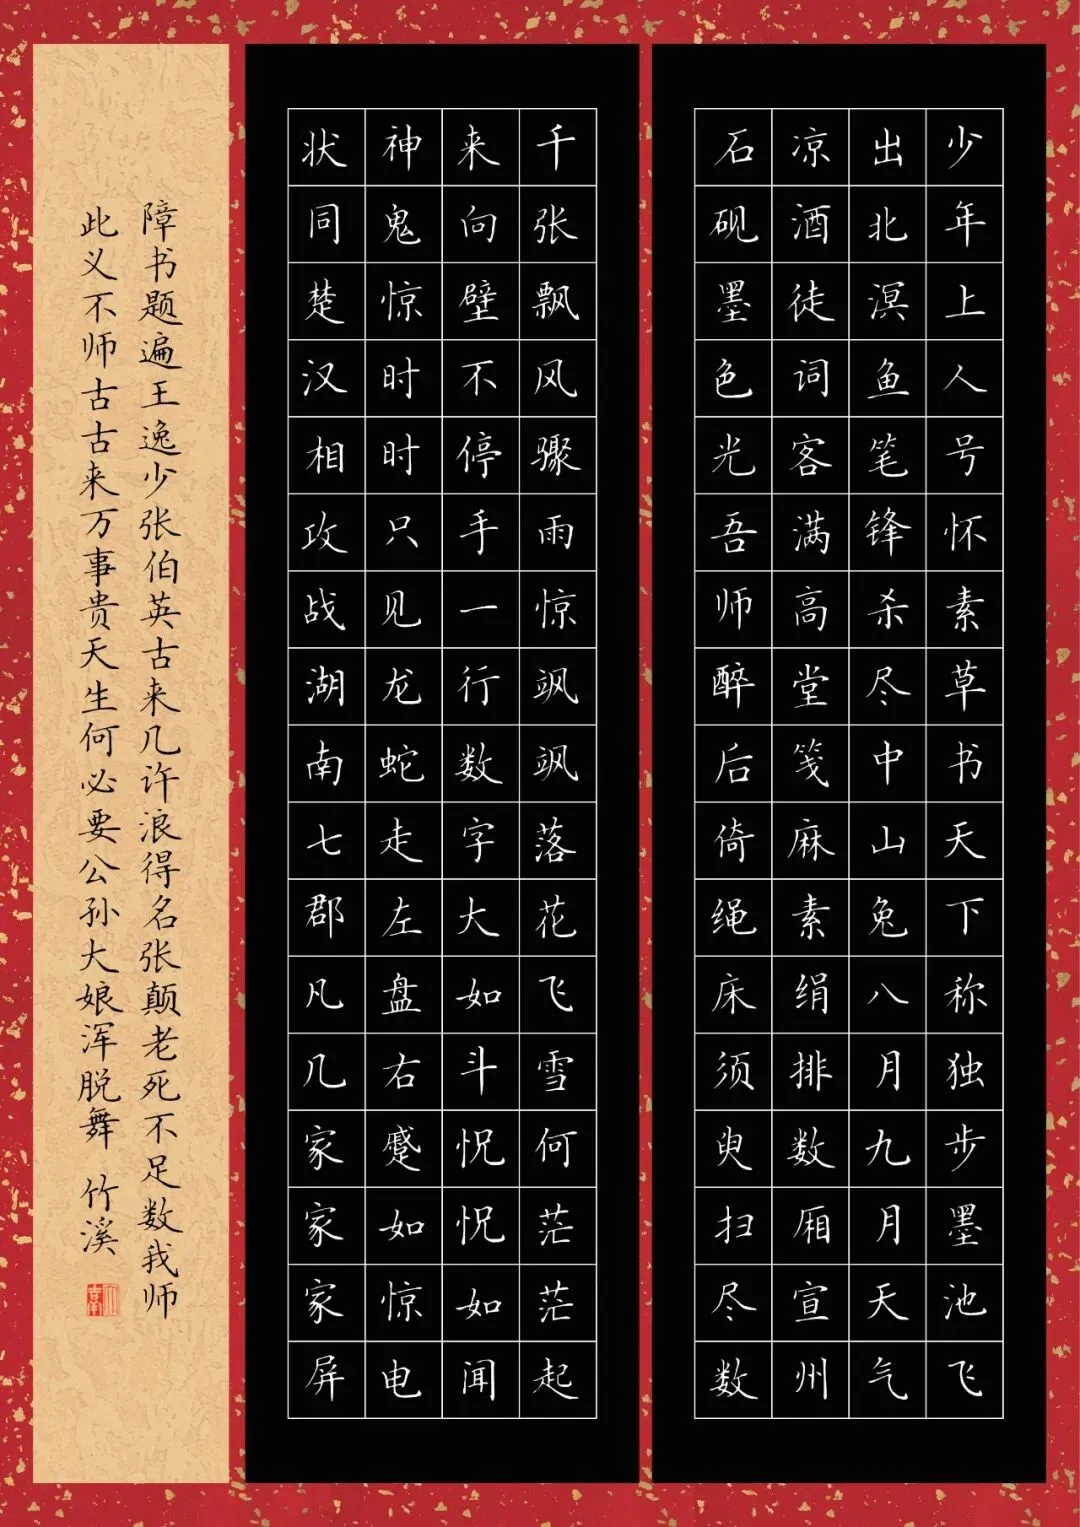 少年上人号怀素草书天下称独步墨池飞
出北溟鱼笔锋杀尽中山兔八月九月天气
凉酒徒词客满高堂笺麻素绢排数厢宣州
石砚墨色光吾师醉后倚绳床须臾扫尽数
千张飘风骤雨惊飒飒落花飞雪何茫茫起
来向壁不停手一行数字大如斗怳怳如闻
神鬼惊时时只见龙蛇走左盘右蹙如惊电
状同楚汉相攻战湖南七郡凡几家家家屏
障书题遍王逸少张伯英古来几许浪得名张颠老死不足数我师
此义不师古古来万事贵天生何必要公孙大娘浑脱舞 竹溪